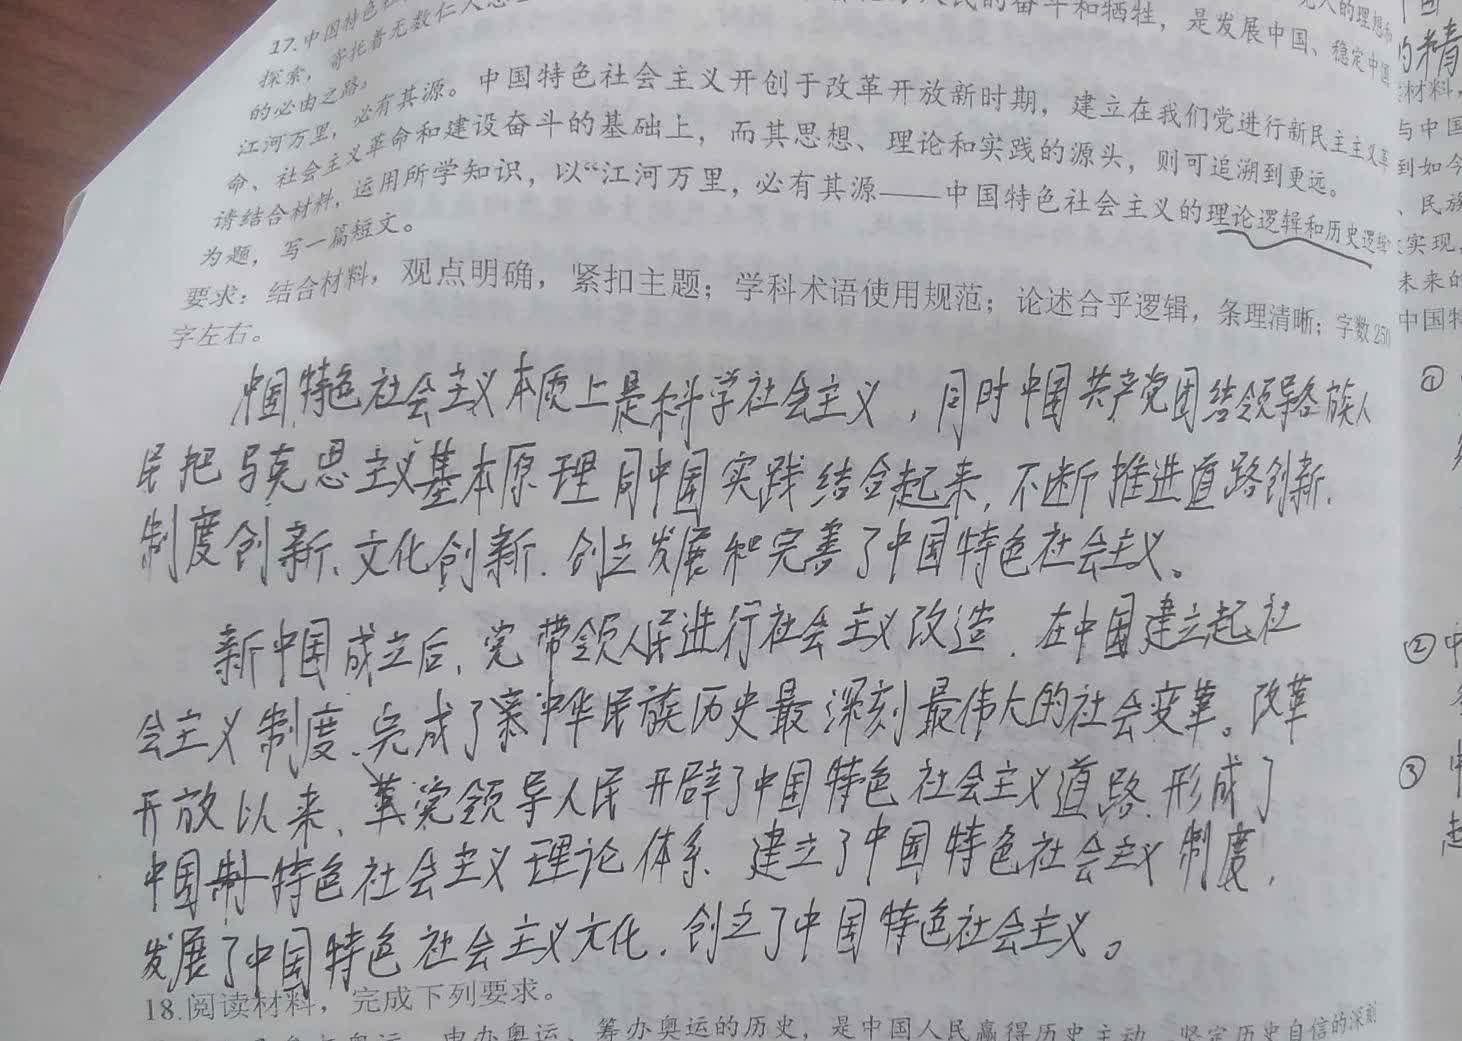 17.中国特色社
人民的奋斗和牺牲，是发展中国、稳定中国
探索，寄托着无数仁人志士
的必由之路。
江河万里，必有其源。中国特色社会主义开创于改革开放新时期，建立在我们党进行新民主主义革
命、社会主义革命和建设奋斗的基础上，而其思想、理论和实践的源头，则可追溯到更远。
请结合材料，运用所学知识，以“江河万里，必有其源——中国特色社会主义的理论逻辑和历史逻辑
为题，写一篇短文。
要求：结合材料，观点明确，紧扣主题；学科术语使用规范；论述合乎逻辑，条理清晰；字数250
字左右。
中国特色社会主义本质上是科学社会主义，同时中国共产党团结领导各族人
民把马克思主义基本原理同中国实践结合起来，不断推进道路创新、
制度创新、文化创新，创立发展和完善了中国特色社会主义。
新中国成立后，党带领人民进行社会主义改造，在中国建立起社
会主义制度、完成了中华民族历史最深刻最伟大的社会变革。改革
开放以来、党领导人民开辟了中国特色社会主义道路，形成了
中国特色社会主义理论体系、建立了中国特色社会主义制度，
发展了中国特色社会主义文化，创立了中国特色社会主义。
18.阅读材料，完成下列要求。
申办奥运、筹办奥运的历史，是中国人民赢得历史主动、坚定历史自信的深刻
人的理想和
中国
的精
材料，
与中国
到如今
、民族
实现，
未来的
中国特
①
②中
③中